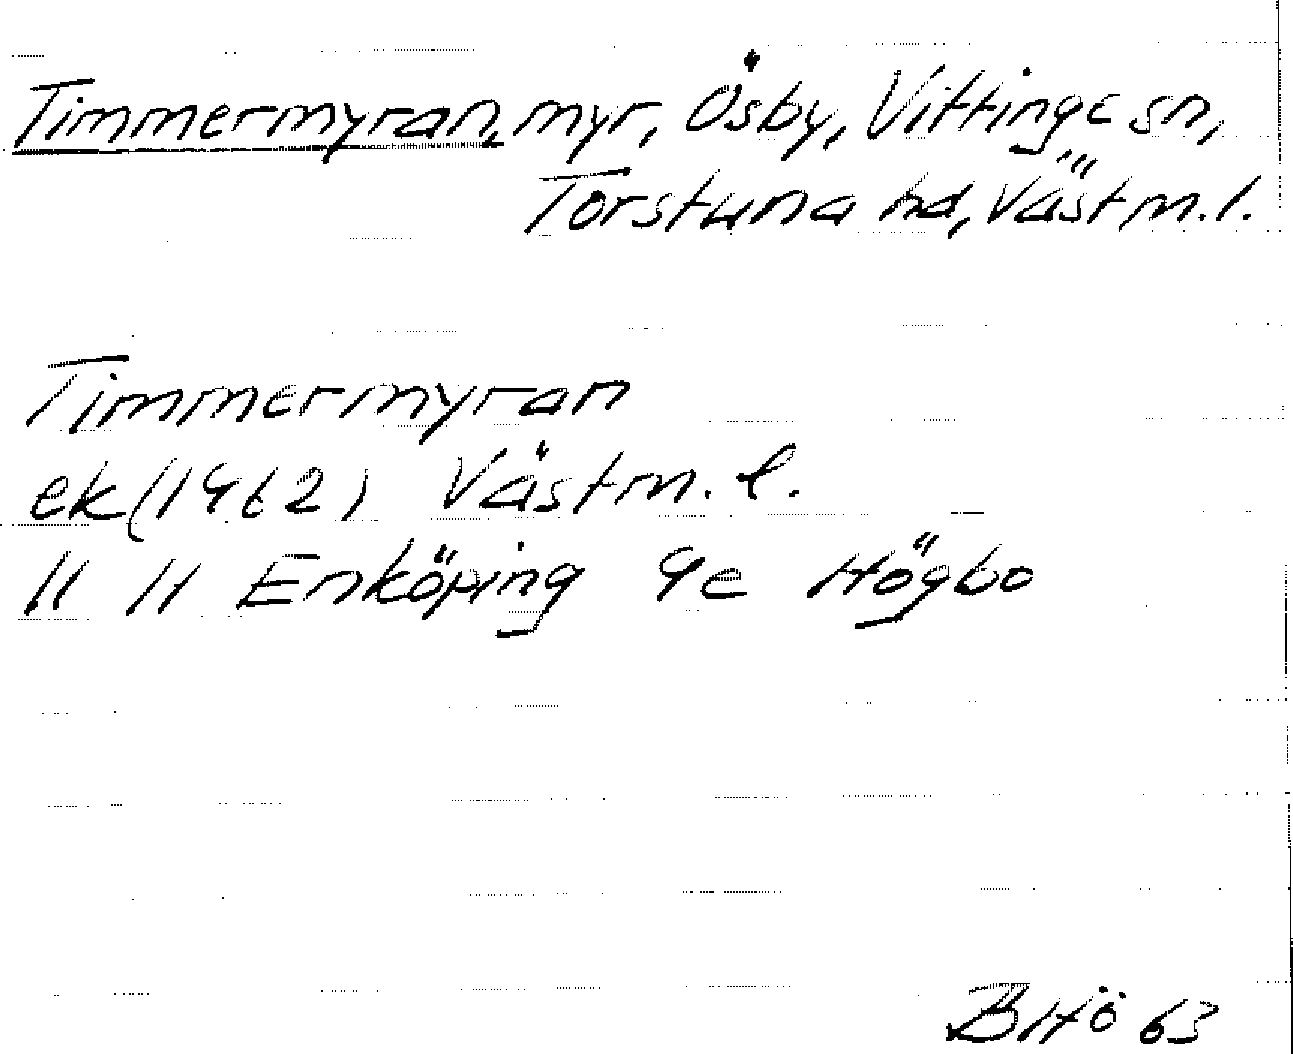 Timmermyran, myr, Ösby, Vittinge sn,
Torstuna hd, Västm.l.
Timmermyran
ek(1962) Västm.l.
" " Enköping 9e Högbo
BHö 63